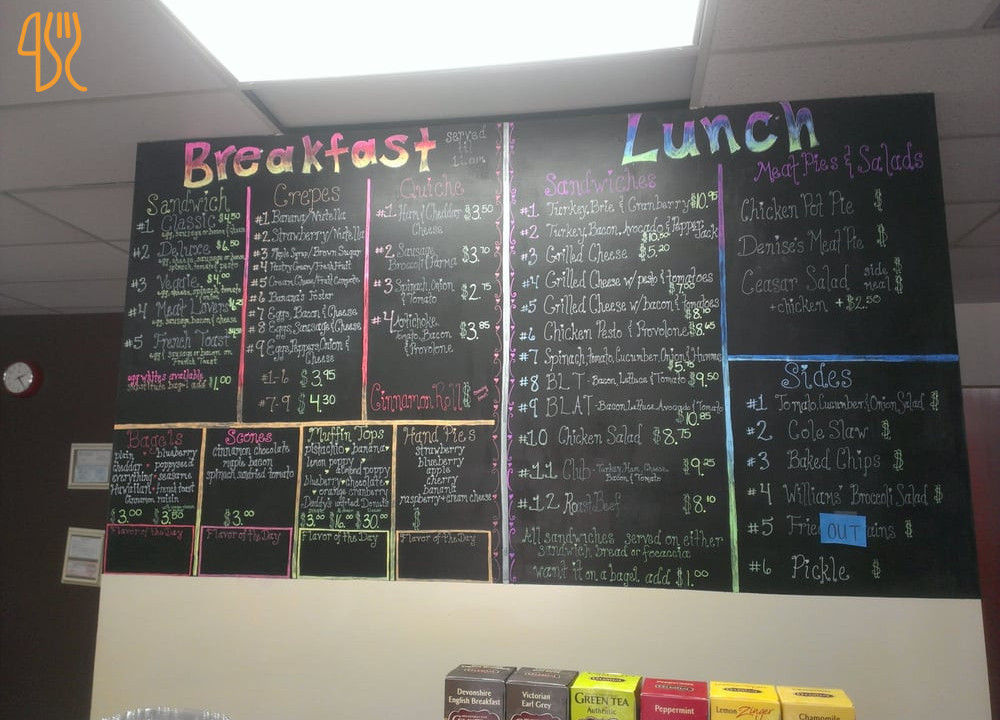 Breakfast
served
til
11am
Sandwich
#1 Classic $4.50
egg, sausage or bacon & cheese
#2 Deluxe
#3 Veggie $4.00
#4 Meat Lovers
egg, sausage, bacon & cheese
#5 French Toast $4.50
egg & sausage or bacon on
French Toast
egg whites available
substitute bagel add $1.00
Crepes
#1 Banana/Nutella
#2 Strawberry/Nutella
#3 Maple Syrup/Brown Sugar
#4 Pastry Cream/Fresh Fruit
#5 Cream Cheese/Fruit Compote
#6 Banana's Foster
#7 Eggs, Bacon & Cheese
#8 Eggs, Sausage & Cheese
#9 Eggs, Peppers, Onion &
Cheese
#1-6 $3.95
#7-9 $4.30
Quiche
#1 Ham & Cheddar $3.50
Cheese
#2 Sausage, $3.70
Broccoli & Parma
#3 Spinach, Onion $2.75
& Tomato
#4 Artichoke, $3.85
Tomato, Bacon
& Provolone
Cinnamon Roll $
Bagels
plain blueberry
cheddar poppyseed
everything sesame
Hawaiian french toast
cinnamon raisin
$3.00 $3.50
Flavor of the Day
Scones
cinnamon chocolate
maple bacon
spinach, sundried tomato
$3.00
Flavor of the Day
Muffin Tops
pistachio banana
lemon poppy
almond poppy
blueberry chocolate
orange cranberry
$3.00 $16.00 $30.00
Flavor of the Day
Hand Pies
strawberry
blueberry
apple
cherry
banana
raspberry + cream cheese
$
Flavor of the Day
Lunch
Sandwiches
#1 Turkey, Brie & Cranberry $10.95
#2 Turkey, Bacon, Avocado & Pepper Jack
#3 Grilled Cheese $5.20
#4 Grilled Cheese w/ pesto & tomatoes
$7.00
#5 Grilled Cheese w/ bacon & tomatoes
#6 Chicken Pesto & Provolone $8.65
#7 Spinach, Tomato, Cucumber, Onion & Hummus
$5.75
#8 BLT - Bacon, Lettuce & Tomato $9.50
#9 BLAT - Bacon, Lettuce, Avocado & Tomato
$10.85
#10 Chicken Salad $8.75
#11 Club - Turkey, Ham, Cheese, $9.25
Bacon & Tomato
#12 Roast Beef $8.10
All sandwiches served on either
sandwich bread or focaccia
want it on a bagel add $1.00
Meat Pies & Salads
Chicken Pot Pie $
Denise's Meat Pie $
Ceasar Salad side $
meal $
+ chicken + $2.50
Sides
#1 Tomato, Cucumber, & Onion Salad $
#2 Cole Slaw $
#3 Baked Chips $
#4 Williams' Broccoli Salad $
#5 Frie OUT ains $
#6 Pickle $
Devonshire
English Breakfast
Victorian
Earl Grey
GREEN TEA
Authentic
Peppermint
Lemon Zinger
Chamomile